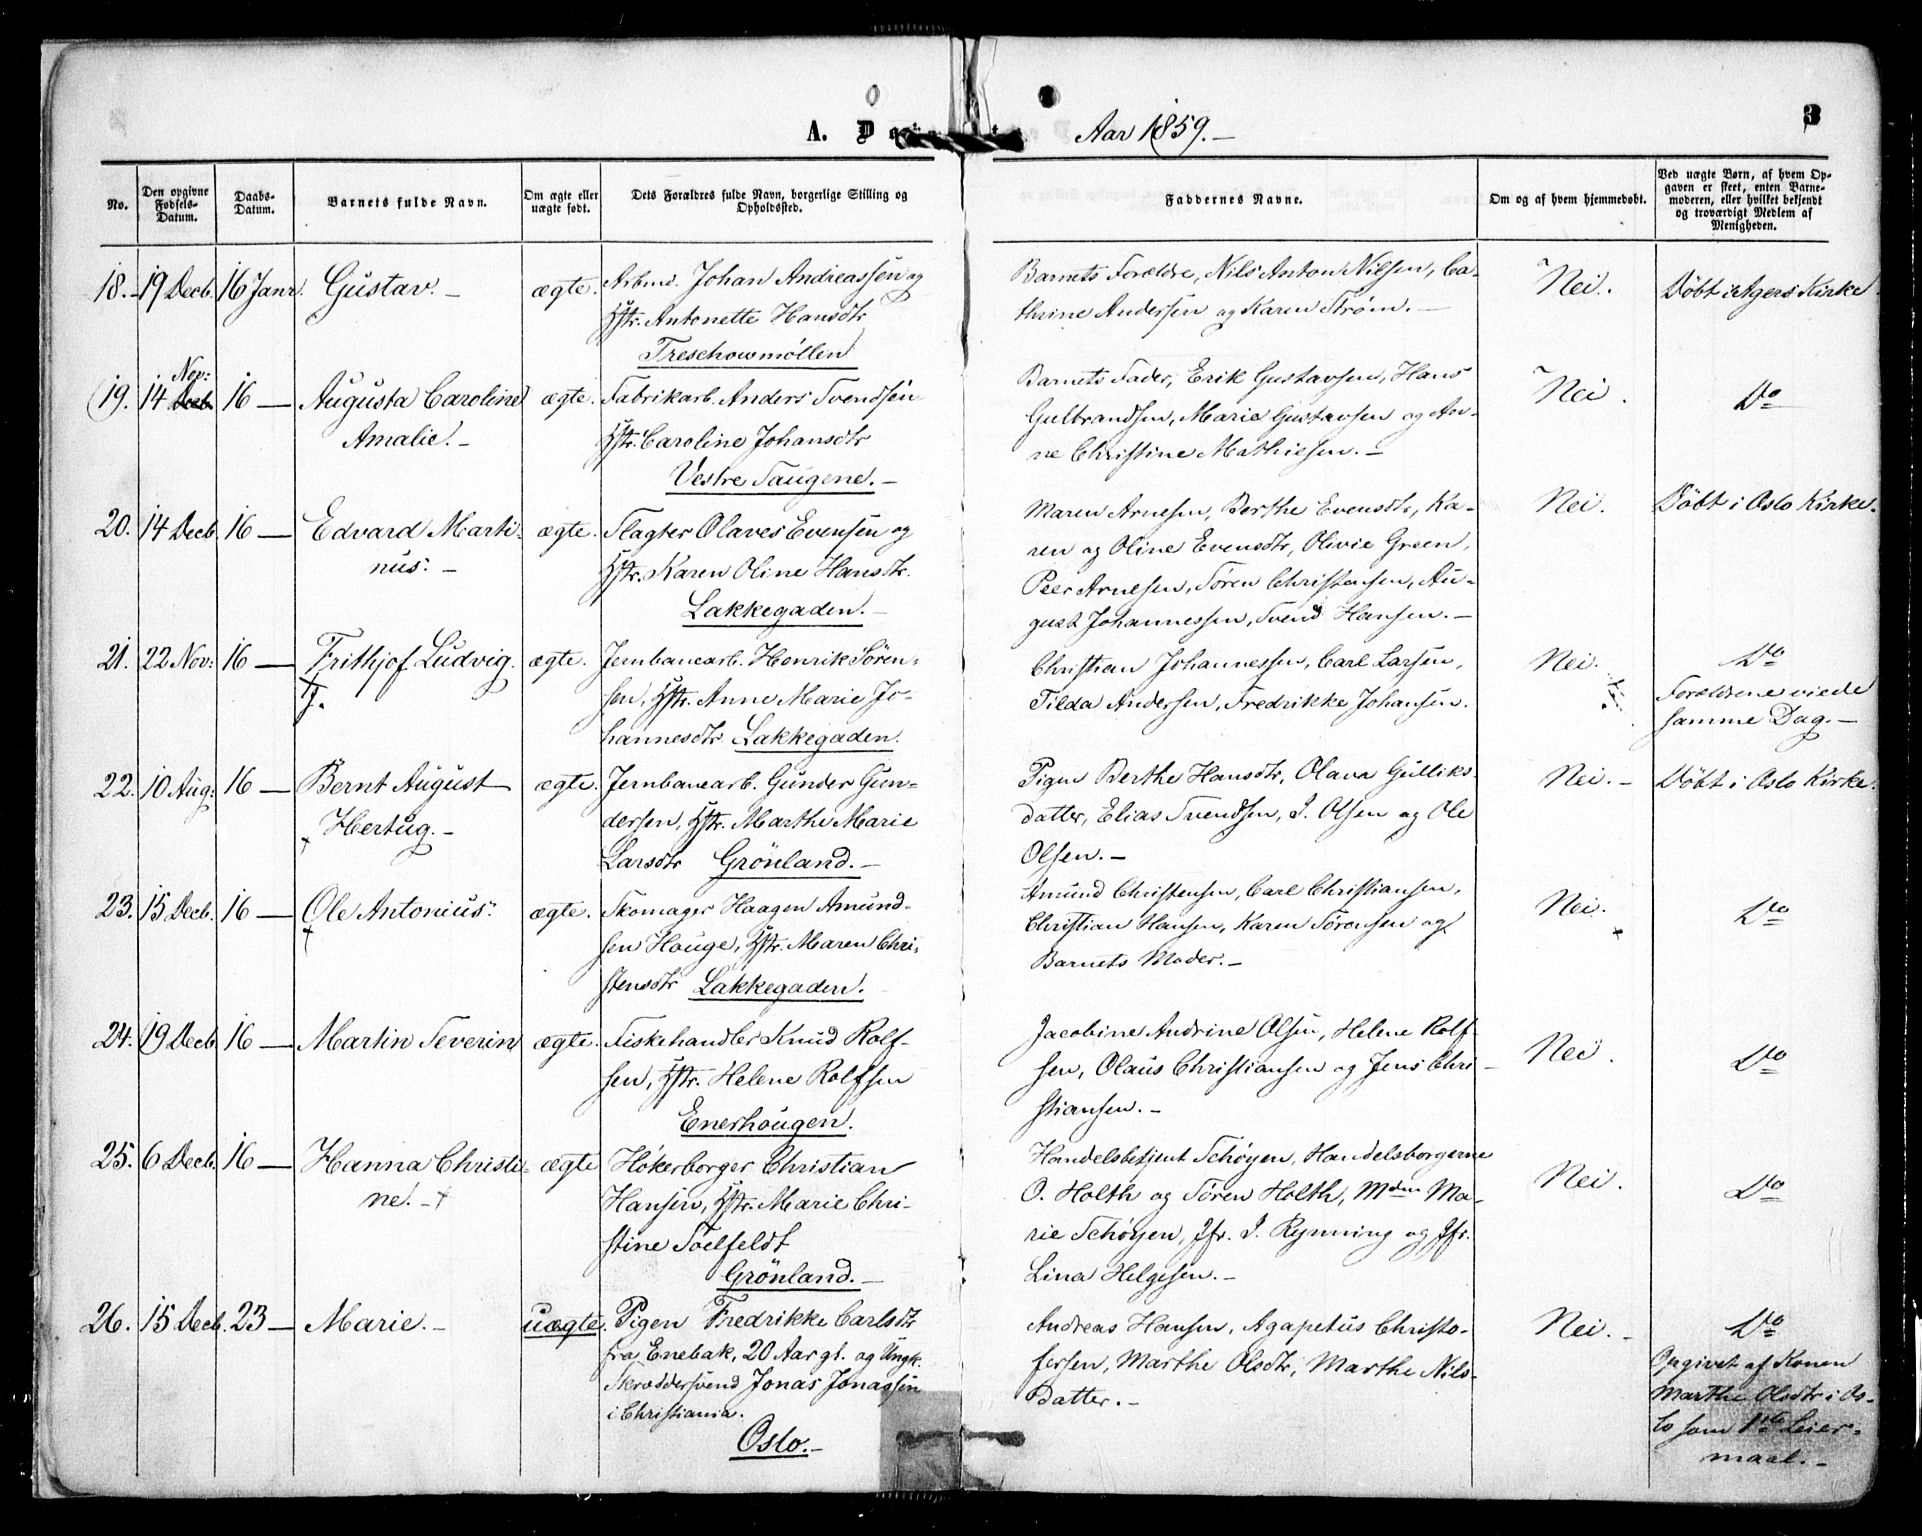 A. D
Aar 1859. –
3
No.
Den opgivne Fødsels-Datum.
Daabs-Datum.
Barnets fulde Navn.
Om ægte eller uægte født.
Dets Forældres fulde Navn, borgerlige Stilling og Opholdssted.
Faddernes Navne.
Om og af hvem hjemmedøbt.
Ved uægte Børn, af hvem Opgaven er skeet, enten Barnemoderen, eller hvilket bekjendt og troværdigt Medlem af Menigheden.
18. 19 Decb. 16 Janr. Gustav. – ægte. Arbmd. Johan Andreassen og
Hstr. Antonette Hansdtr
Treschowmøllen
Barnets Forældre, Nils Anton Nilsen, Ca-
thrine Andersen og Karen Strøm. –
Nei. Døbt i Agers Kirke
19. 14 Nov: Decb. 16 — Augusta Caroline
Amalie. – ægte. Fabrikarb. Anders Svendsen
Hstr. Caroline Johansdtr
Vestre Taugene. –
Barnets Fader, Erik Gustavsen, Hans
Gulbrandsen, Marie Gustavsen og An-
ne Christine Mathiesen. –
Nei. Do
20. 14 Decb. 16 — Edvard Marti-
nus. – ægte. Slagter Olaves Evensen og
Hstr. Karen Oline Hansdtr.
Lakkegaden. –
Maren Arnesen, Berthe Evensdtr, Ka-
ren og Oline Evensdtr, Olivie Green,
Peer Arnesen, Søren Christensen, Au-
gust Johannessen, Svend Hansen. –
Nei. Døbt i Oslo Kirke.
21. 22 Nov: 16 — Frithjof Ludvig. ægte. Jernbanearb. Henrik Søren-
sen, Hstr. Anne Marie Jo-
hannesdtr Lakkegaden.
Christian Johannessen, Carl Larsen,
Tilda Andersen, Fredrikke Johansen.
Nei. Do
Forældrene viede
samme Dag. –
22. 10 Aug: 16 — Bernt August
Hertug. – ægte. Jernbanearb. Gunder Gun-
dersen, Hstr. Marthe Marie
Larsdtr Grönland. –
Pigen Berthe Hansdtr, Olava Gulliks-
datter, Elias Svendsen, I. Olsen og Ole
Olsen. –
Nei. – Døbt i Oslo Kirke.
23. 15 Decb. 16 — Ole Antonius. ægte. Skomager Haagen Amund-
sen Hauge, Hstr. Maren Chri-
stensdtr Lakkegaden.
Amund Christensen, Carl Christiansen,
Christian Hansen, Karen Sörensen og
Barnets Moder. –
Nei. Do
24. 19 Decb. 16 — Martin Severin ægte. Fiskehandler Knud Rolf-
sen, Hstr. Helene Rolfsen
Enerhougen.
Jacobine Andrine Olsen, Helene Rolf-
sen, Olaus Christiansen og Jens Chri-
stiansen. –
Nei. Do
25. 6 Decb. 16 — Hanna Christi-
ne. – ægte Høkerborger Christian
Hansen, Hstr. Marie Chri-
stine Toelfeldt
Grönland. –
Handelsbetjent Schøyen, Handelsborgerne
O. Holth og Søren Holth, Mdm Ma-
rie Schøyen, Jfr. I. Rynning og Jfr.
Lina Helgesen. –
Nei. Do
26. 15 Decb. 23 — Marie. – uægte. Pigen Fredrikke Carlsdtr
fra Enebak, 20 Aar gl. og Ungk.
Skræddersvend Jonas Jonassen
i Christiania.
Oslo. –
Andreas Hansen, Agapetus Christo-
fersen, Marthe Olsdtr, Marthe Nils-
datter. –
Nei. – Do
Opgivet af Konen
Marthe Olsdtr i Os-
lo som 1ste Leier-
maal. –